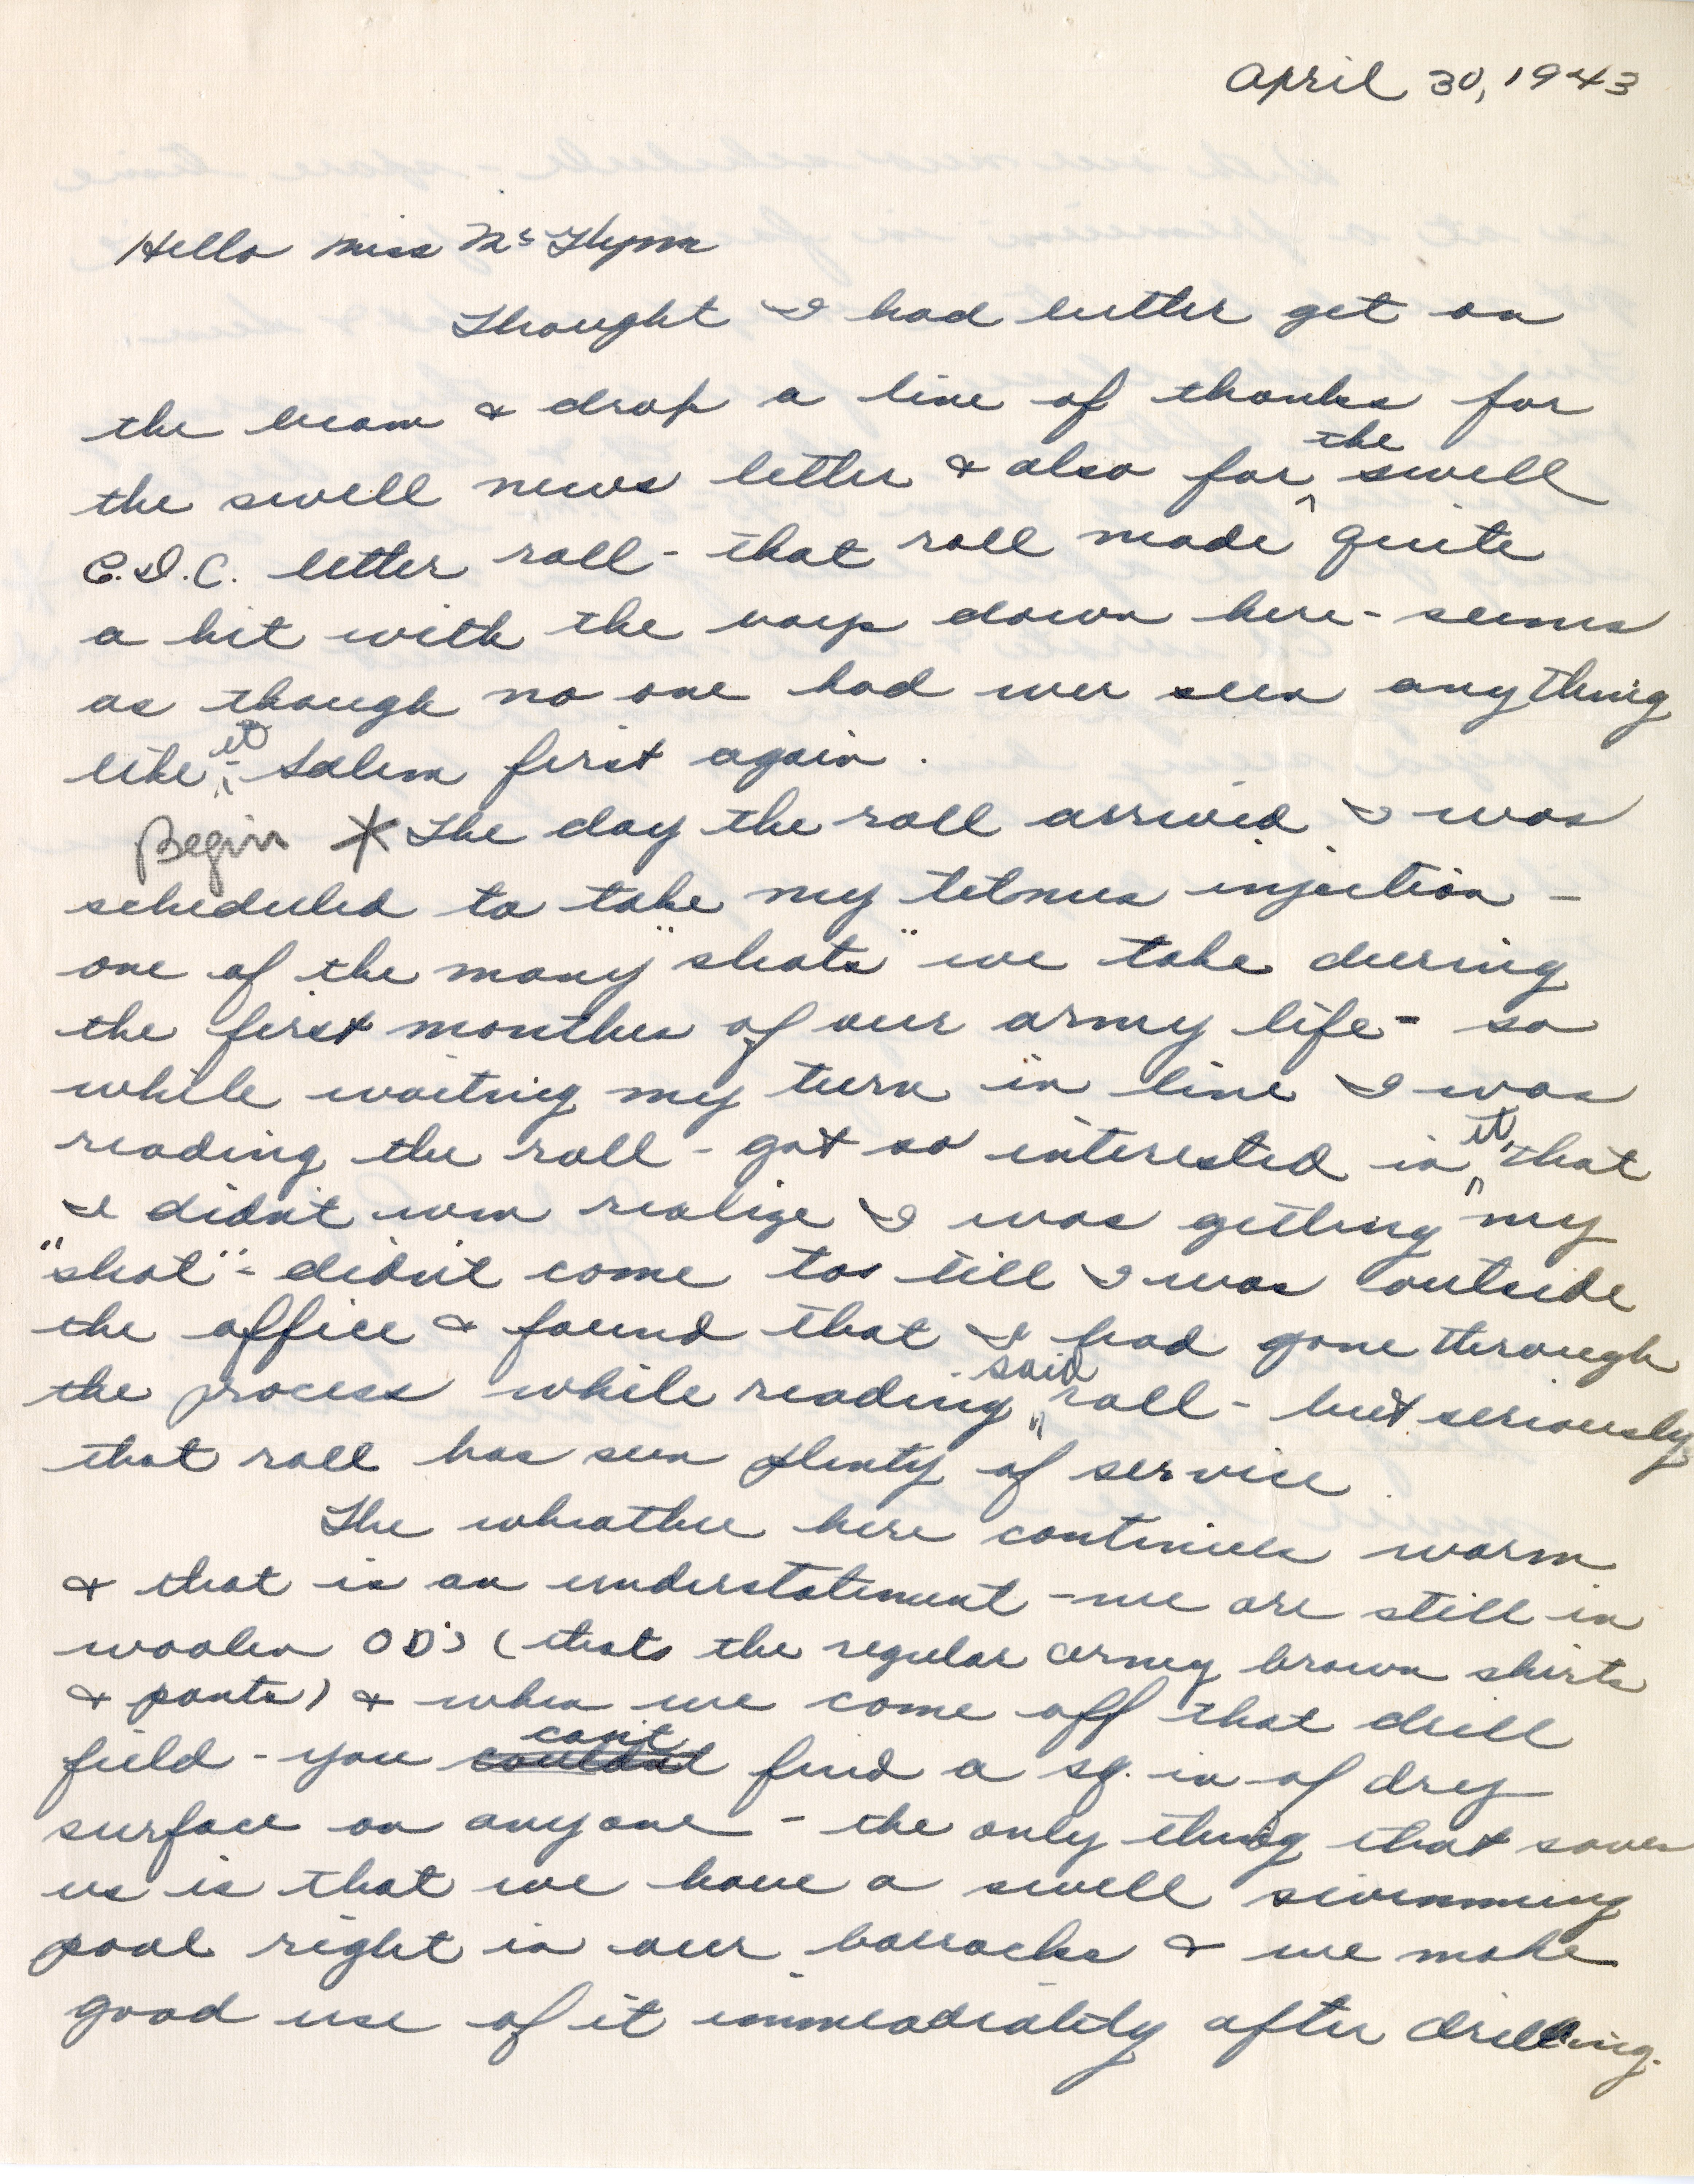 April 30, 1943
Hello Miss McGlynn
Thought I had better get on
the beam & drop a line of thanks for
the swell news letter & also for the swell
C.D.C. letter roll - that roll made quite
a hit with the boys down here - seems
as though no one had ever seen anything
like it - Salem first again.
Begin * The day the roll arrived I was
scheduled to take my tetnus injection -
one of the many "shots" we take during
the first months of our army life - so
while waiting my turn in line I was
reading the roll - got so interested in it, that
I didn't even realize I was getting my
"shot" - didn't come too till I was outside
the office & found that I had gone through
the process while reading said roll - but seriously
that roll has seen plenty of service.
The wheather here continues warm
& that is an understatement - we are still in
woolen OD's (thats the regular army brown shirts
& pants) & when we come off that drill
field - you couldn't can't find a sq. in of dry
surface on anyone - the only thing that saves
us is that we have a swell swimming
pool right in our barracks & we make
good use of it immeadiatily after drilling.